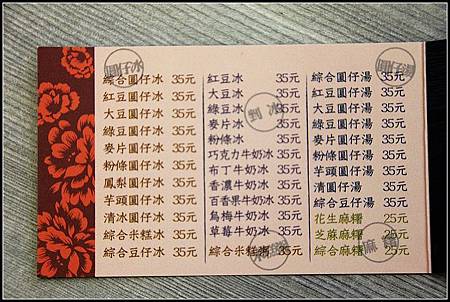 圓仔冰
綜合圓仔冰 35元
紅豆圓仔冰 35元
大豆圓仔冰 35元
綠豆圓仔冰 35元
麥片圓仔冰 35元
粉條圓仔冰 35元
鳳梨圓仔冰 35元
芋頭圓仔冰 35元
清冰圓仔冰 35元
綜合米糕冰 35元
綜合豆仔冰 35元
剉冰
紅豆冰 35元
大豆冰 35元
綠豆冰 35元
麥片冰 35元
粉條冰 35元
巧克力牛奶冰 35元
布丁牛奶冰 35元
香濃牛奶冰 35元
百香果牛奶冰 35元
烏梅牛奶冰 35元
草莓牛奶冰 35元
綜合米糕粥 35元
圓仔湯
綜合圓仔湯 35元
紅豆圓仔湯 35元
大豆圓仔湯 35元
綠豆圓仔湯 35元
麥片圓仔湯 35元
粉條圓仔湯 35元
芋頭圓仔湯 35元
清圓仔湯 35元
綜合豆仔湯 35元
花生麻糬 25元
芝麻麻糬 25元
綜合麻糬 25元
麻糬